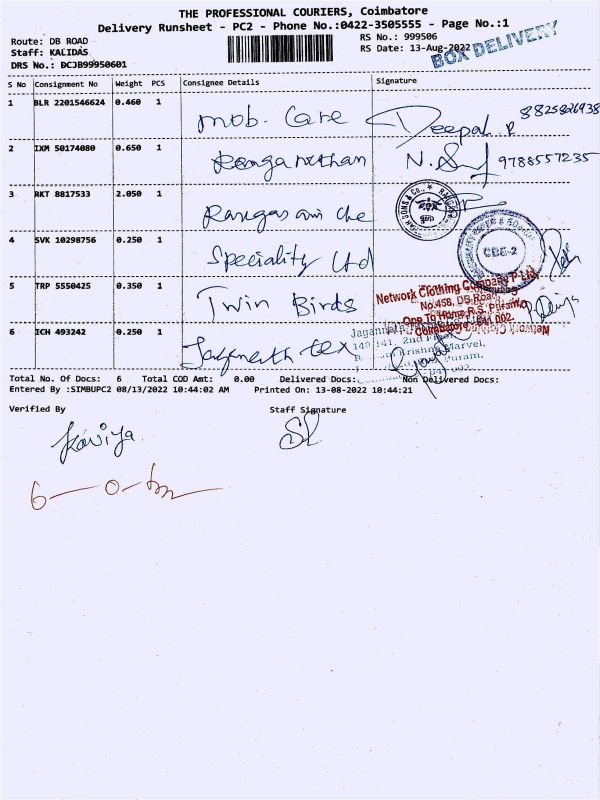 THE PROFESSIONAL COURIERS, Coimbatore
Delivery Runsheet - PC2 - Phone No.:0422-3505555 - Page No.:1
Route: DB ROAD
RS No.: 999506
Staff: KALIDAS
RS Date: 13-Aug-2022
DRS No.: DCJB99950601
BOX DELIVERY
S No Consignment No Weight PCS Consignee Details Signature
1 BLR 2201546624 0.460 1 mob. Care Deepak R 8825826938
2 IXM 50174080 0.650 1 Ranganathan 9788557235
3 RKT 8817533 2.050 1 Rangasami che
4 SVK 10298756 0.250 1 Speciality Ltd
CBE-2
5 TRP 5550425 0.350 1 Twin Birds
Network Clothing Company P Ltd,
No.458, DB Road,
Opp To Home R.S. Puram,
Coimbatore 641 002.
6 ICH 493242 0.250 1 Jagannath tex
Total No. Of Docs: 6 Total COD Amt: 0.00 Delivered Docs: Non Delivered Docs:
Entered By :SIMBUPC2 08/13/2022 10:44:02 AM Printed On: 13-08-2022 10:44:21
Verified By Staff Signature
Kaviya
6 — 0 —